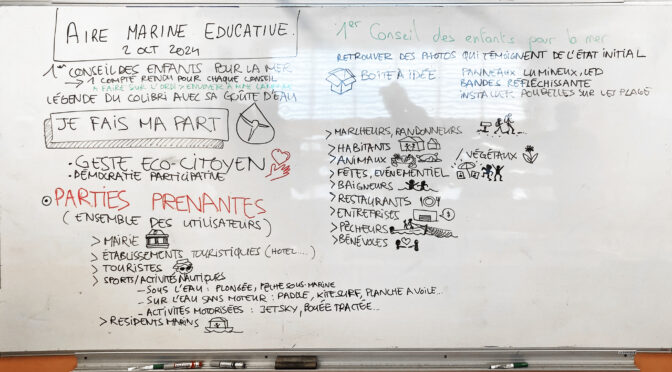 AIRE MARINE EDUCATIVE.
2 OCT 2024
1er CONSEIL DES ENFANTS POUR LA MER
→ 1 COMPTE RENDU POUR CHAQUE CONSEIL
A FAIRE SUR L'ORDI > ENVOYER A
LÉGENDE DU COLIBRI AVEC SA GOUTE D'EAU
JE FAIS MA PART
• GESTE ECO-CITOYEN
• DÉMOCRATIE PARTICIPATIVE
PARTIES PRENANTES
(ENSEMBLE DES UTILISATEURS)
> MAIRIE
> ÉTABLISSEMENTS TOURISTIQUES (HOTEL....)
> TOURISTES
> SPORTS/ACTIVITÉS NAUTIQUES
- SOUS L'EAU : PLONGÉE, PÊCHE SOUS-MARINE
- SUR L'EAU SANS MOTEUR : PADDLE, KITESURF, PLANCHE A VOILE...
- ACTIVITÉS MOTORISÉES : JETSKY, BOUÉE TRACTÉE...
> RESIDENTS MARINS
1er Conseil des enfants pour la mer
RETROUVER DES PHOTOS QUI TÉMOIGNENT DE L'ÉTAT INITIAL
BOITE À IDÉE
PANNEAUX LUMINEUX, LED
BANDES RÉFLÉCHISSANTE
INSTALLER POUBELLES SUR LES PLAGE
> MARCHEURS, RANDONNEURS
> HABITANTS
> ANIMAUX / VÉGÉTAUX
> FÊTES, EVÈNEMENTIEL
> BAIGNEURS
> RESTAURANTS
> ENTREPRISES
> PÊCHEURS
> BÉNÉVOLES